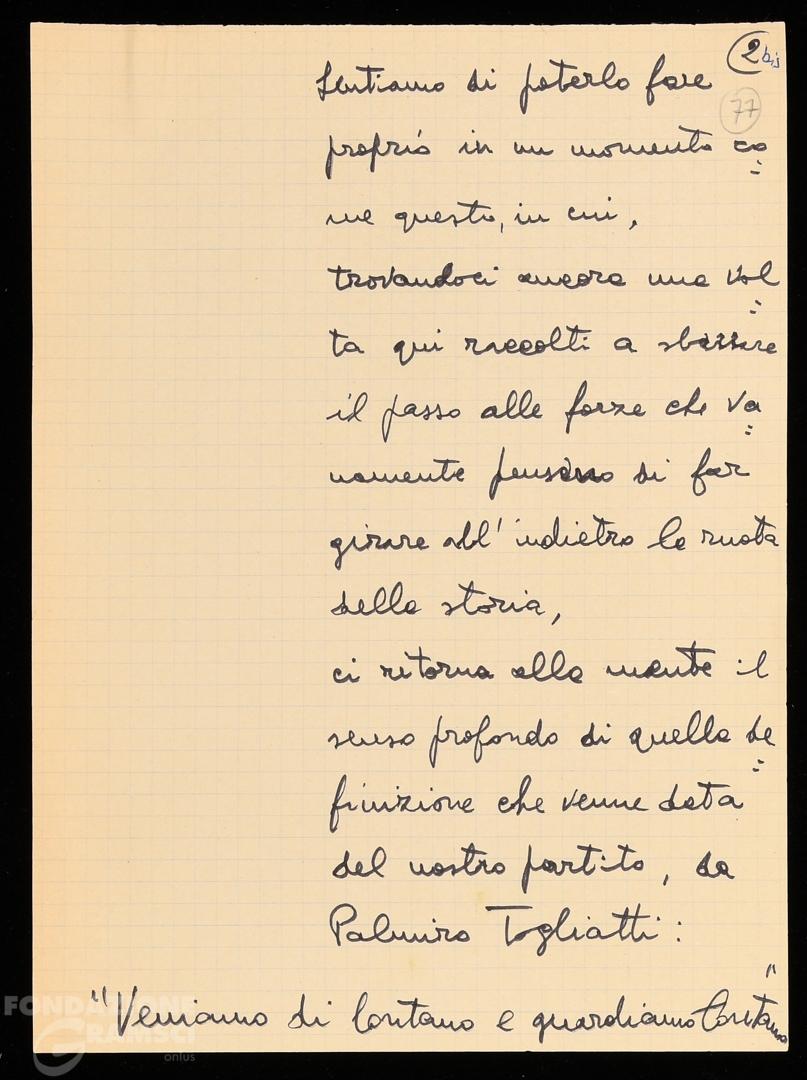 2 bis
77
sentiamo di poterlo fare
proprio in un momento co
me questo, in cui,
trovandoci ancora una vol
ta qui raccolti a sbarrare
il passo alle forze che va
namente pensano di far
girare all'indietro la ruota
della storia,
ci ritorna alla mente il
senso profondo di quella de
finizione che venne data
del nostro partito, da
Palmiro Togliatti:
"Veniamo di lontano e guardiamo lontano"
FONDAZIONE
GRAMSCI
onlus